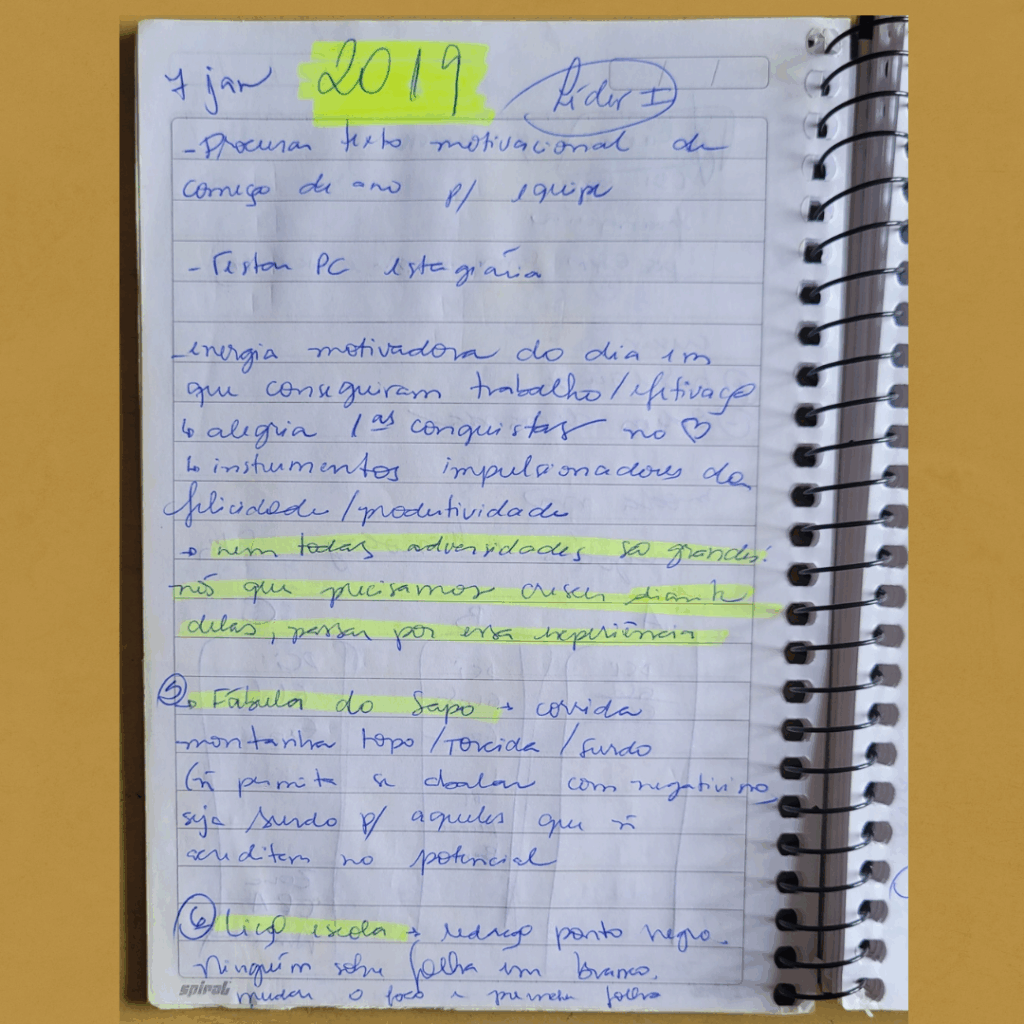 7 jan 2019 Líder I
- Procurar texto motivacional de
começo de ano p/ equipe
- Testar PC estagiária
- energia motivadora do dia em
que conseguiram trabalho/efetivação
↳ alegria 1as conquistas no ♡
↳ instrumentos impulsionadores da
felicidade/produtividade
→ nem todas adversidades são grandes:
nós que precisamos crescer diante
delas, passar por essa experiência
5. Fábula do Sapo → corrida
montanha topo/torcida/surdo
(ñ permita se abalar com negativismo,
seja surdo p/ aqueles que ñ
acreditem no potencial
6 Lição escola → redação ponto negro.
Ninguém sobre folha em branco.
mudar o foco e folha
spiral